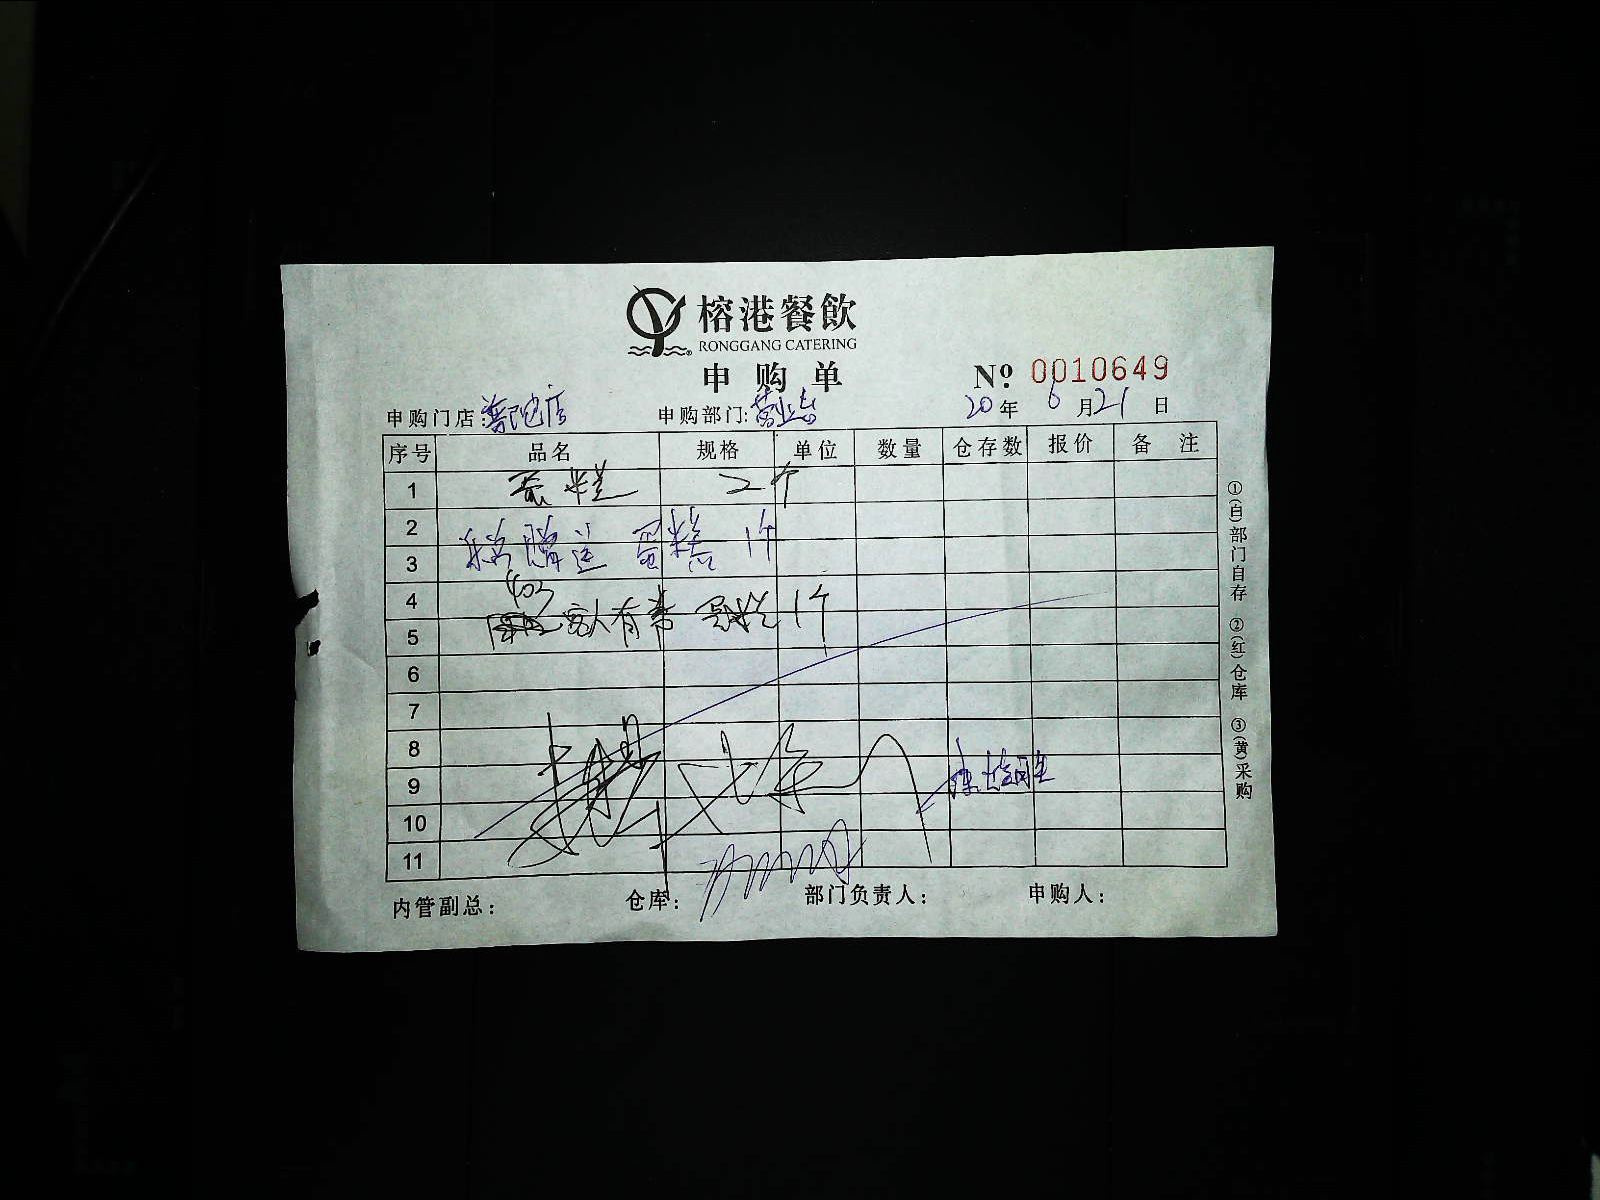 榕港餐飲
RONGGANG CATERING
申购单
Nº 0010649
申购门店:普陀店 申购部门:营业 20年6月21日
序号 品名 规格 单位 数量 仓存数 报价 备注
1 蛋糕 2个
2
3 赠送 蛋糕 1个
4 403
5 客人有 蛋糕 1个
6
7
8
9
10
11
内管副总: 仓库: 部门负责人: 申购人:
①(白)部门自存 ②(红)仓库 ③(黄)采购